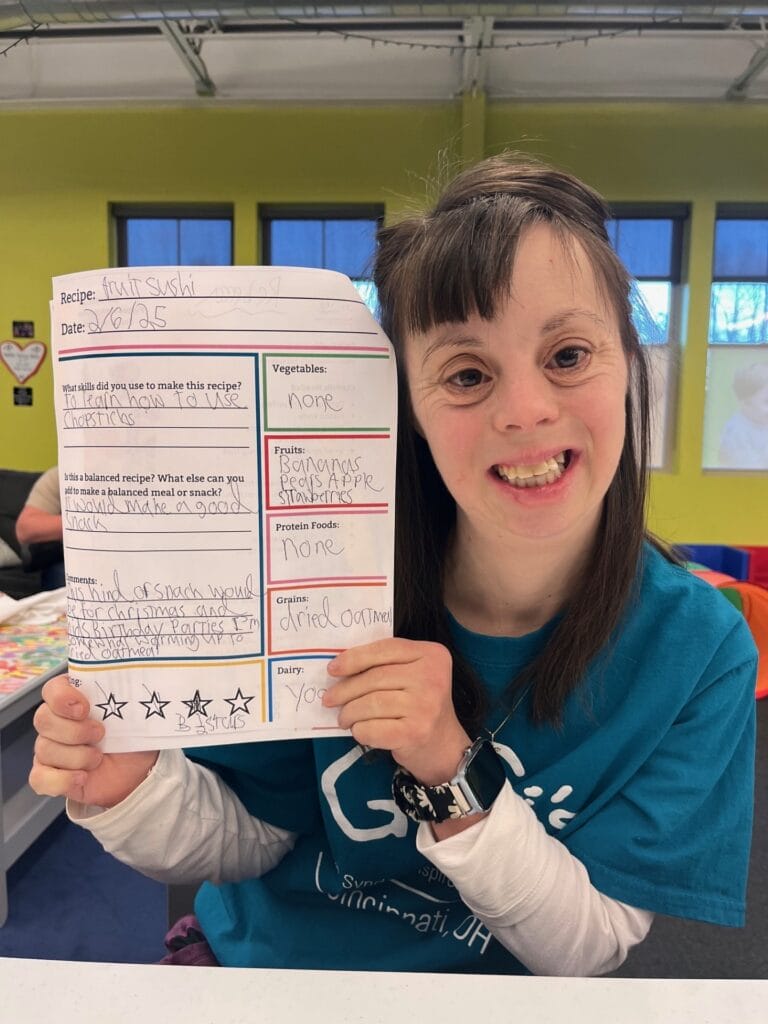 Recipe: fruit sushi
Date: 2/6/25
What skills did you use to make this recipe?
To learn how to use
chopsticks
Is this a balanced recipe? What else can you
add to make a balanced meal or snack?
would make a good
snack
Comments:
kind of snack would
be for christmas and
Birthday Parties I'm
somewhat worming up to
dried oatmeal
Vegetables:
none
Fruits:
Bananas
Pears Apple
strawberries
Protein Foods:
none
Grains:
dried oatmeal
Dairy:
Yo
stars
G
Cincinnati, OH